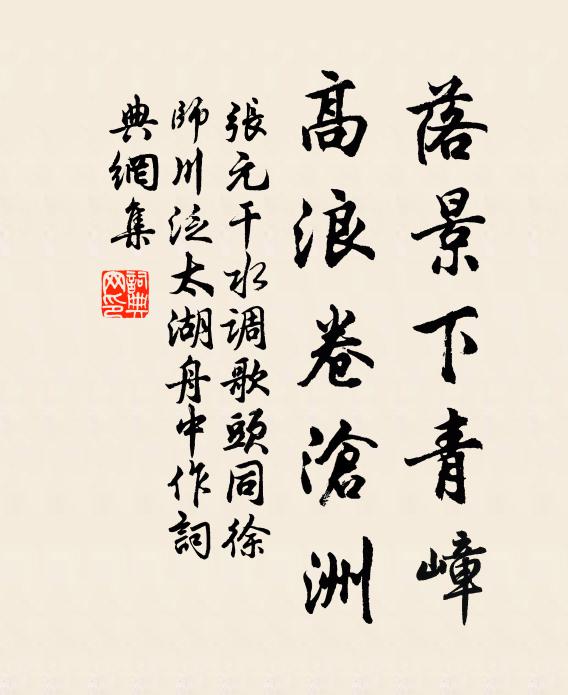 落景下青嶂
高浪卷滄洲
張元干水调歌頭同徐
師川泛太湖舟中作詞
典網集
詞典
网印